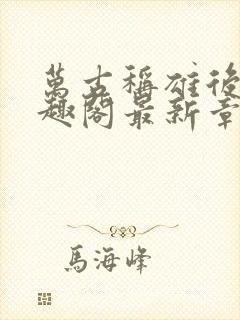 萬古稱雄後
趣閣最新章
馬海峰